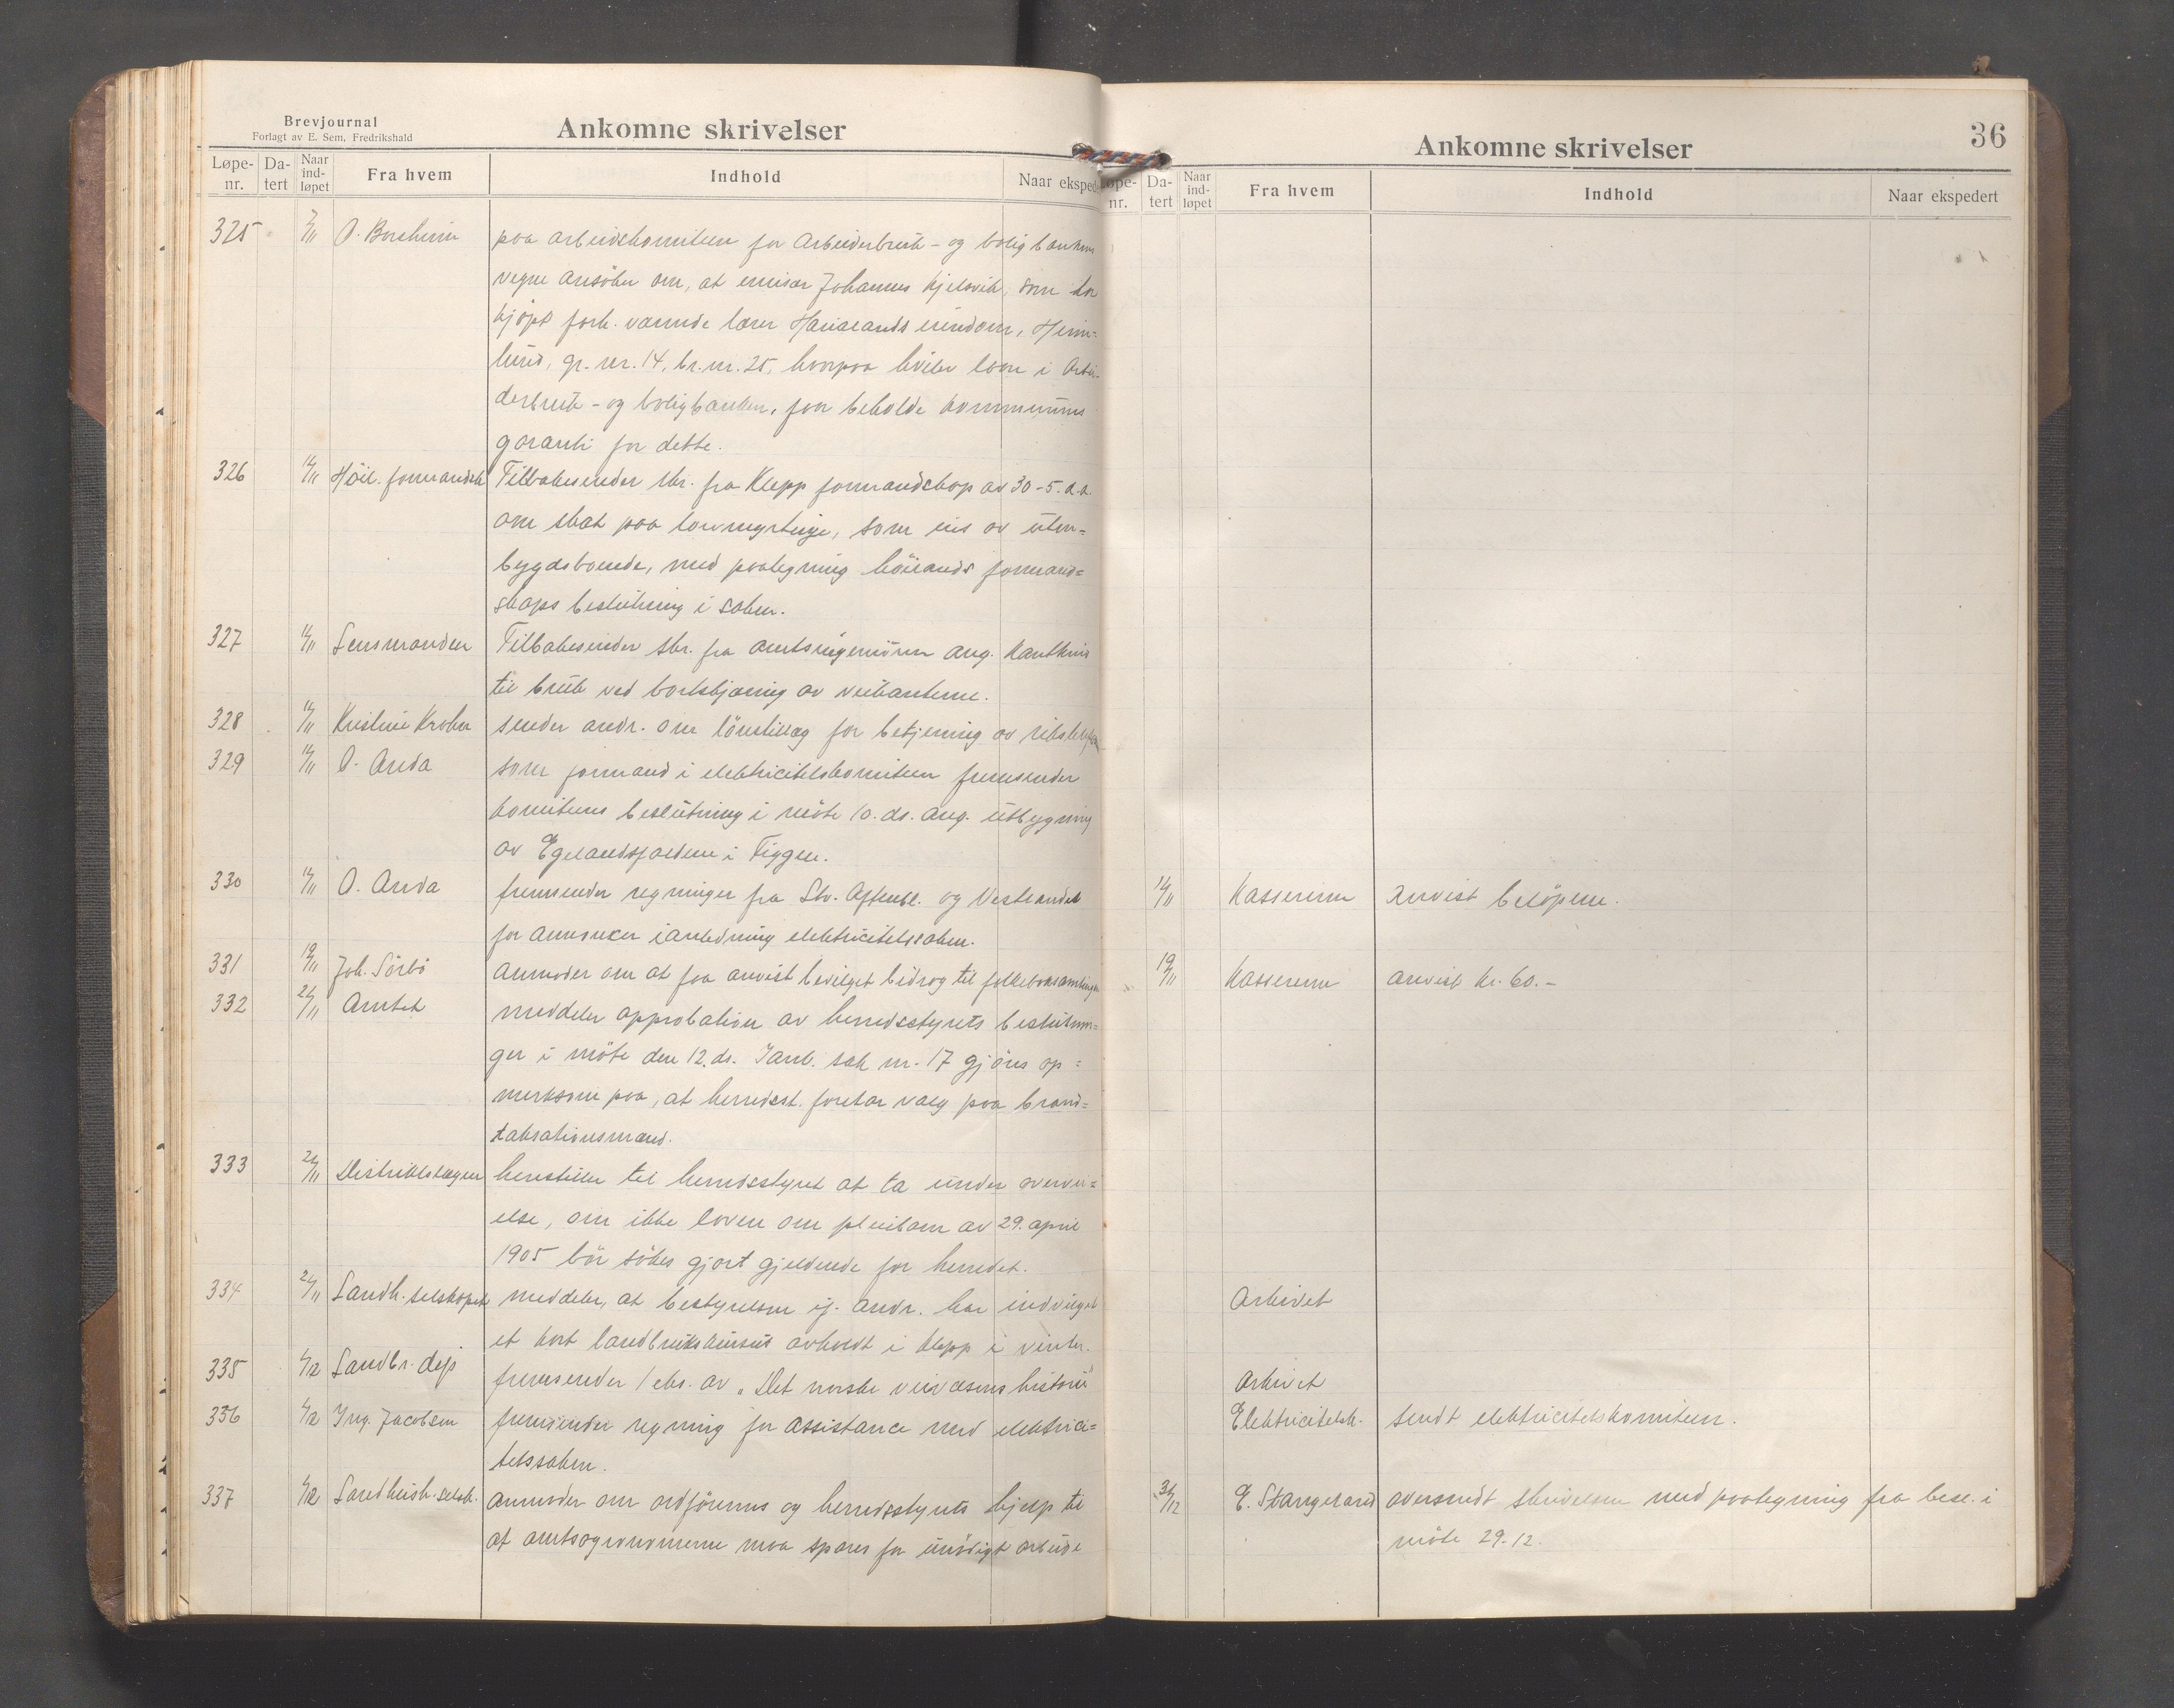 Brevjournal
Forlagt av E. Sem, Fredrikshald
Ankomne skrivelser
Løpe-nr. Da-tert Naar ind-løpet Fra hvem Indhold Naar eksped
325 7/11 O. Borsheim paa arbeidskomiteen for Arbeiderbruk- og boligbankens
vegne ansöker om, at emisær Johannes Kjelsvik, som har
kjöpt forh. værende lærer Haualands eiendom, Heim-
lund, gr. nr. 14, br. nr. 25, hvorpaa hviler laan i Arbei-
derbruk- og boligbanken, faar beholde kommunens
garanti for dette.
326 14/11 Höil. formandsk. Tilbakesender skr. fra Klepp formandskap av 30-5. d.a.
om skat paa torvmyrteige, som eies av uten-
bygdsboende, med paategning höilands formand-
skaps beslutning i saken.
327 14/11 Lensmanden Tilbakesender skr. fra amtsingeniören ang. kantkniv
til bruk ved bortskjæring av veikanterne.
328 14/11 Kristine Kroken sender andr. om lönstillæg for betjening av rikstelefon
329 14/11 O. Anda som formand i elektricitetskomiteen fremsender
komiteens beslutning i möte 10. ds. ang. utbygning
av Egelandsfaldene i Figgen.
330 14/11 O. Anda fremsender regninger fra Stv. Aftenbl. og Vestlandet
for annoncer i anledning elektricitetssaken.
331 19/11 Joh. Sörbö anmoder om at faa anvist bevilget bidrag til folkeboksamlingen
332 26/11 Amtet meddeler approbation av herredsstyrets beslutnin-
ger i möte den 12. ds. I anl. sak nr. 17 gjöres op-
merksom paa, at herredsst. foretar valg paa brand-
taksationsmænd.
333 26/11 Distriktslægen henstiller til herredsstyret at ta under overvei-
else, om ikke loven om pleiebarn av 29. april
1905 bör sökes gjort gjeldende for herredet.
334 26/11 Landh. selskapet meddeler, at bestyrelsen ef. andr. har indvilget
et kort landbrukskursus avholdt i Klepp i vinter.
335 1/12 Landbr. dep fremsender 1 eks. av "Det norske veivæsens historie"
336 1/12 Ing. Jacobsen fremsender regning for assistance med elektrici-
tetssaken.
337 1/12 Landhush. selsk. anmoder om ordförerens og herredsstyrets hjelp til
at amtsagronomerne maa spares for unödigt arbeide
Ankomne skrivelser
36
Løpe-nr. Da-tert Naar ind-løpet Fra hvem Indhold Naar ekspedert
14/11 Kassereren Anvist belöpene.
19/11 Kassereren anvist kr. 60.-
Arkivet
Arkivet
Elektricitetsk. sendt elektricitetskomiteen.
31/12 E. Stangeland oversendt skrivelsen med paategning fra besl. i
möte 29.12.